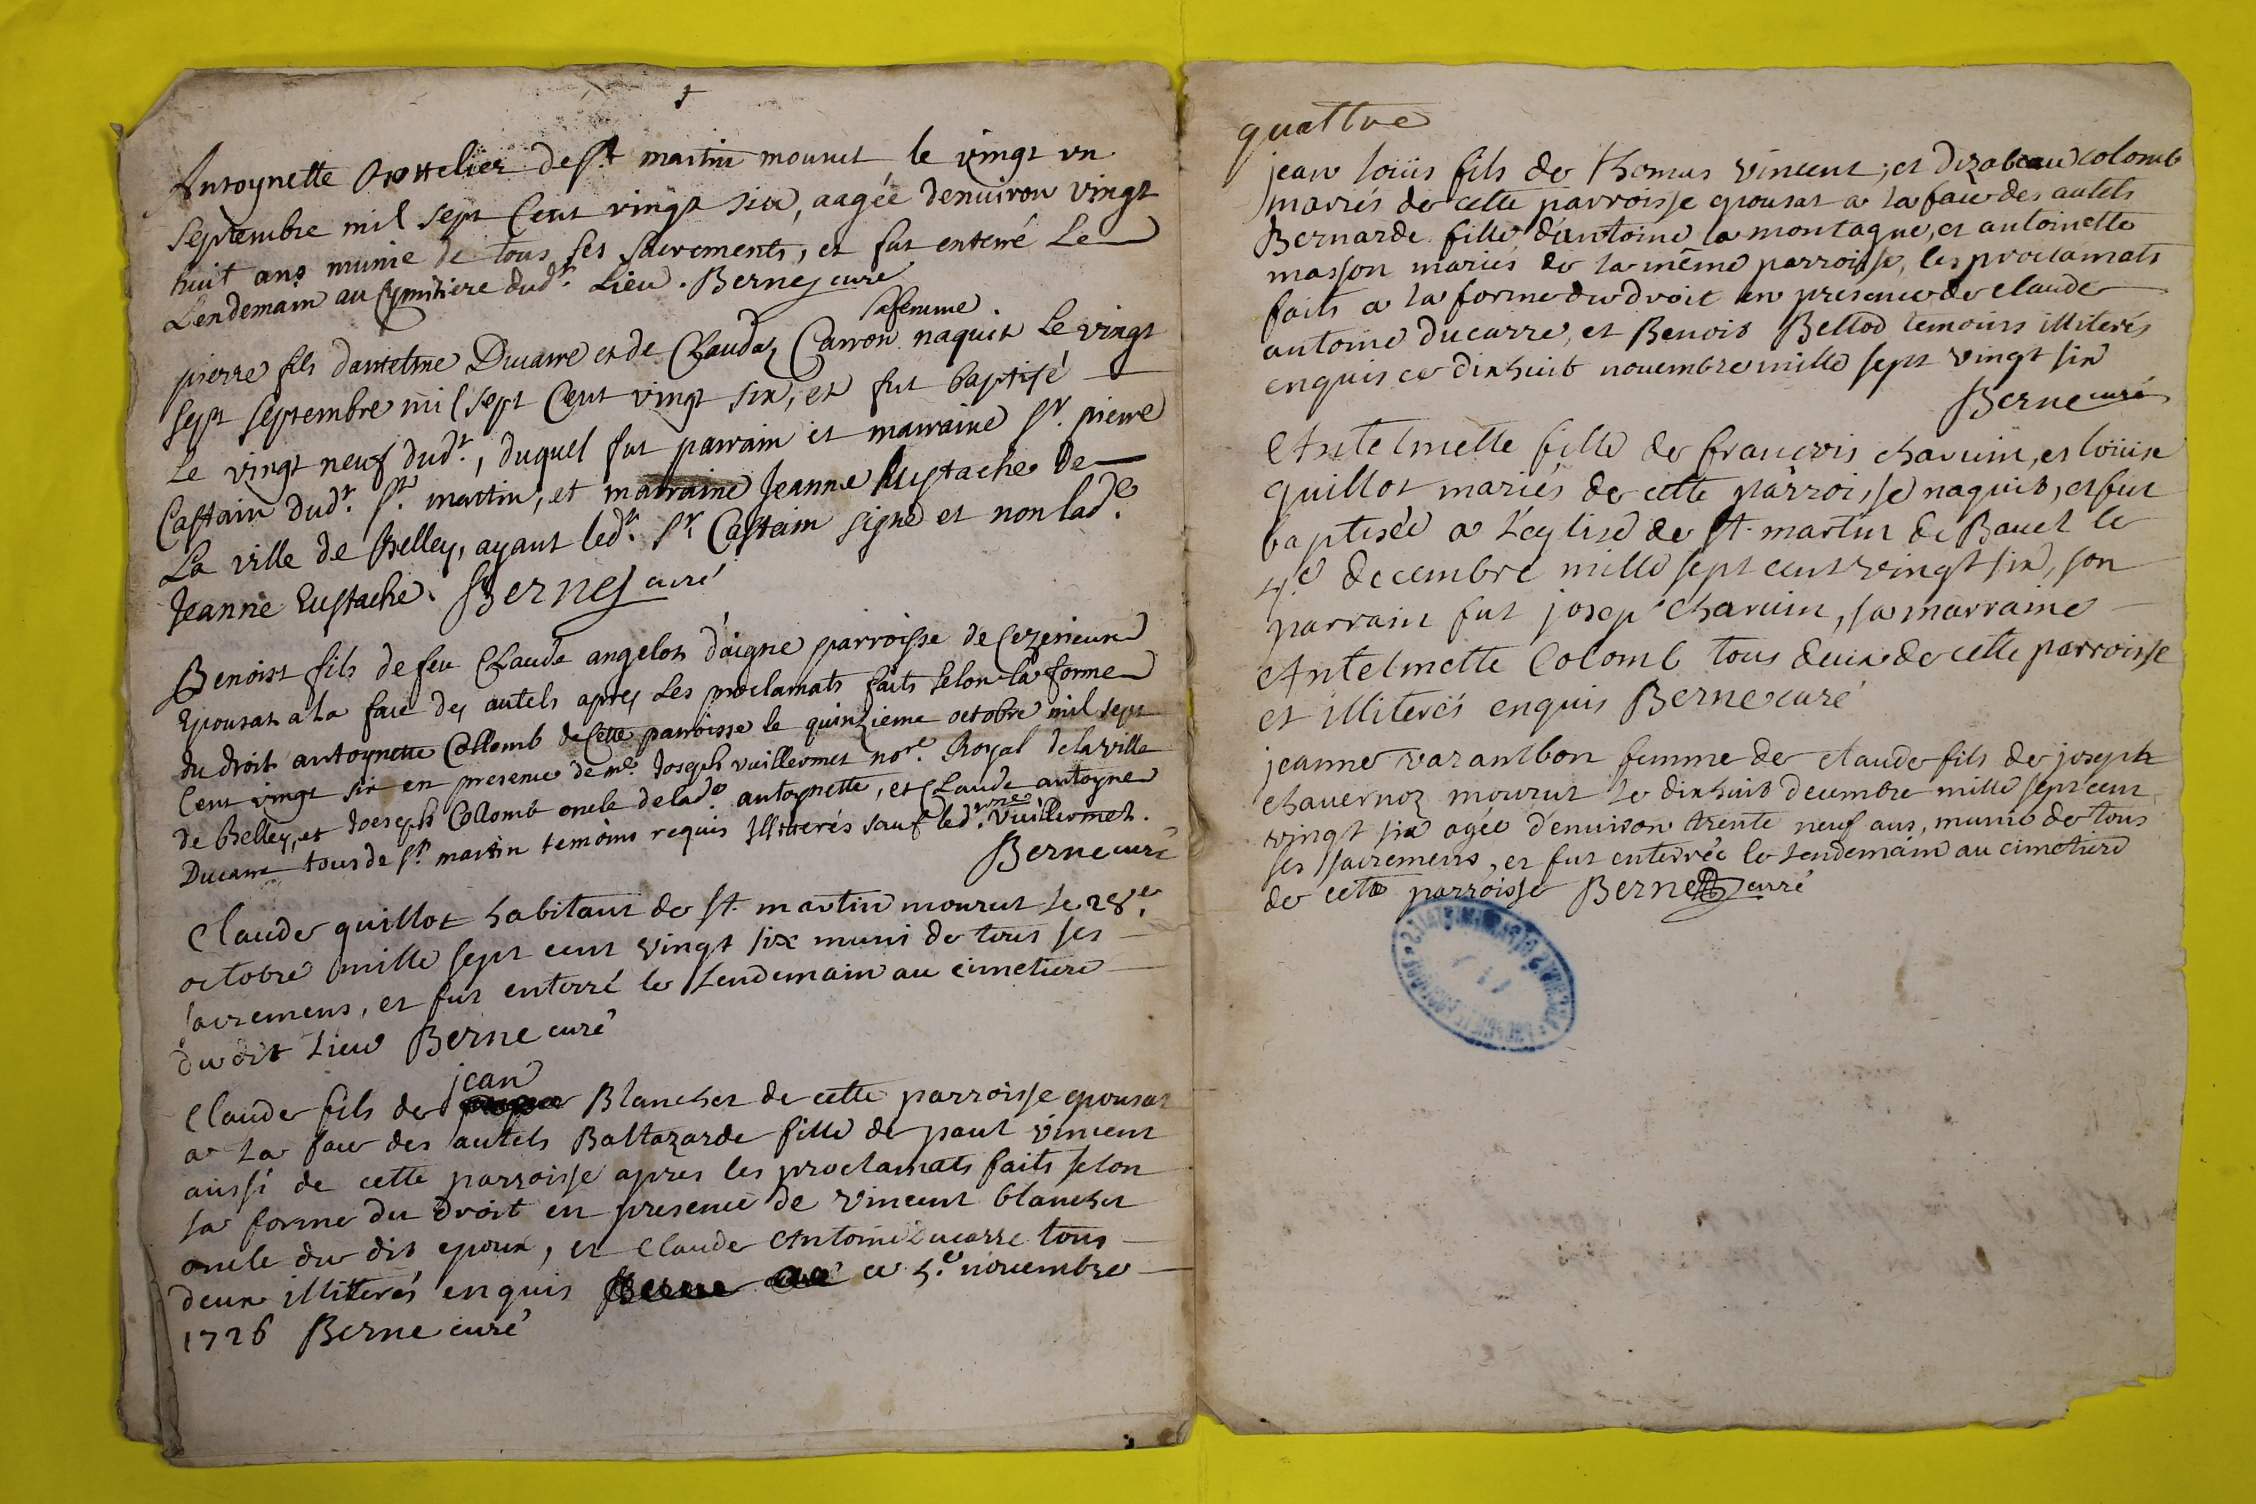 Antoynette Crottelier de st martin mourut le vingt un
septembre mil sept Cent vingt six, aagée denuiron vingt
huit ans munie de tous ses sacrements, et fut enterré Le
Lendemain au Cymitiere dudt. Lieu. Berne curé
sa femme
pierre fils dantelme Ducarre et de Clauda Carron naquit Le vingt
sept septembre mil sept Cent vingt six, et fut baptisé
Le vingt neuf dudt., duquel fut parrain et marraine sr. pierre
Castain dudt. st. martin, et marraine Jeanne Eustache De
La ville de Belley, ayant ledt. sr Castain signé et non lade.
Jeanne Eustache. Berne curé
Benoist fils de feu Claude angelot d'aigne parroisse de Cezerieux
Epousat a la face des autels apres Les proclamats faits selon la forme
du droit antoynette Collomb de Cette parroisse le quinzieme octobre mil sept
Cent vingt six en presence de me. Joseph vuillermet nore. Royal de la ville
de Belley, et Joseph Collomb oncle de lade. antoynette, et Claude antoyne
Ducarre tous de st. martin temoins requis Illiterés sauf ledt. vuillermet.
Berne curé
Claude guillot habitant de st. martin mourut le 28e.
octobre mille sept cent vingt six muni de tous ses
sacremens, et fut enterré le Lendemain au cimetiere
du dit Lieu Berne curé
jean
Claude fils de Blanchet de cette parroisse epousat
a La face des autels Baltazarde fille de paul vincent
aussi de cette parroisse apres les proclamats faits selon
la forme du Droit en presence de vincent blanchet
oncle du dit epoux, et Claude Antoine Ducarre tous
deux illiterés enquis Berne curé ce 5.e novembre
1726 Berne curé
quattre
jean loüis fils de thomas vincent, et dizabeau colomb
mariés de cette parroisse epousat a la face des autels
Bernarde fille d'antoine la montagne, et antoinette
masson mariés de la même parroisse, les proclamats
faits a la forme du droit en presence de Claude
antoine ducarre, et Benois Bellod temoins illiterés
enquis ce dixhuit novembre mille sept vingt six
Berne curé
Antelmette fille de francois charuin, et loüise
guillot mariés de cette parroisse naquit, et fut
baptisée a L'eglise de st. martin de Bauel le
4.e decembre mille sept cent vingt six, son
parrain fut josep charuin, sa marraine
Antelmette Colomb tous deux de cette parroisse
et illiterés enquis Berne curé
jeanne varambon femme de claude fils de joseph
chauernoz mourut le dixhuit decembre mille sept cent
vingt six agée d'enuiron trente neuf ans, munie de tous
ses sacremens, et fut enterrée le Lendemain au cimetiere
de cette parroisse Berne curé